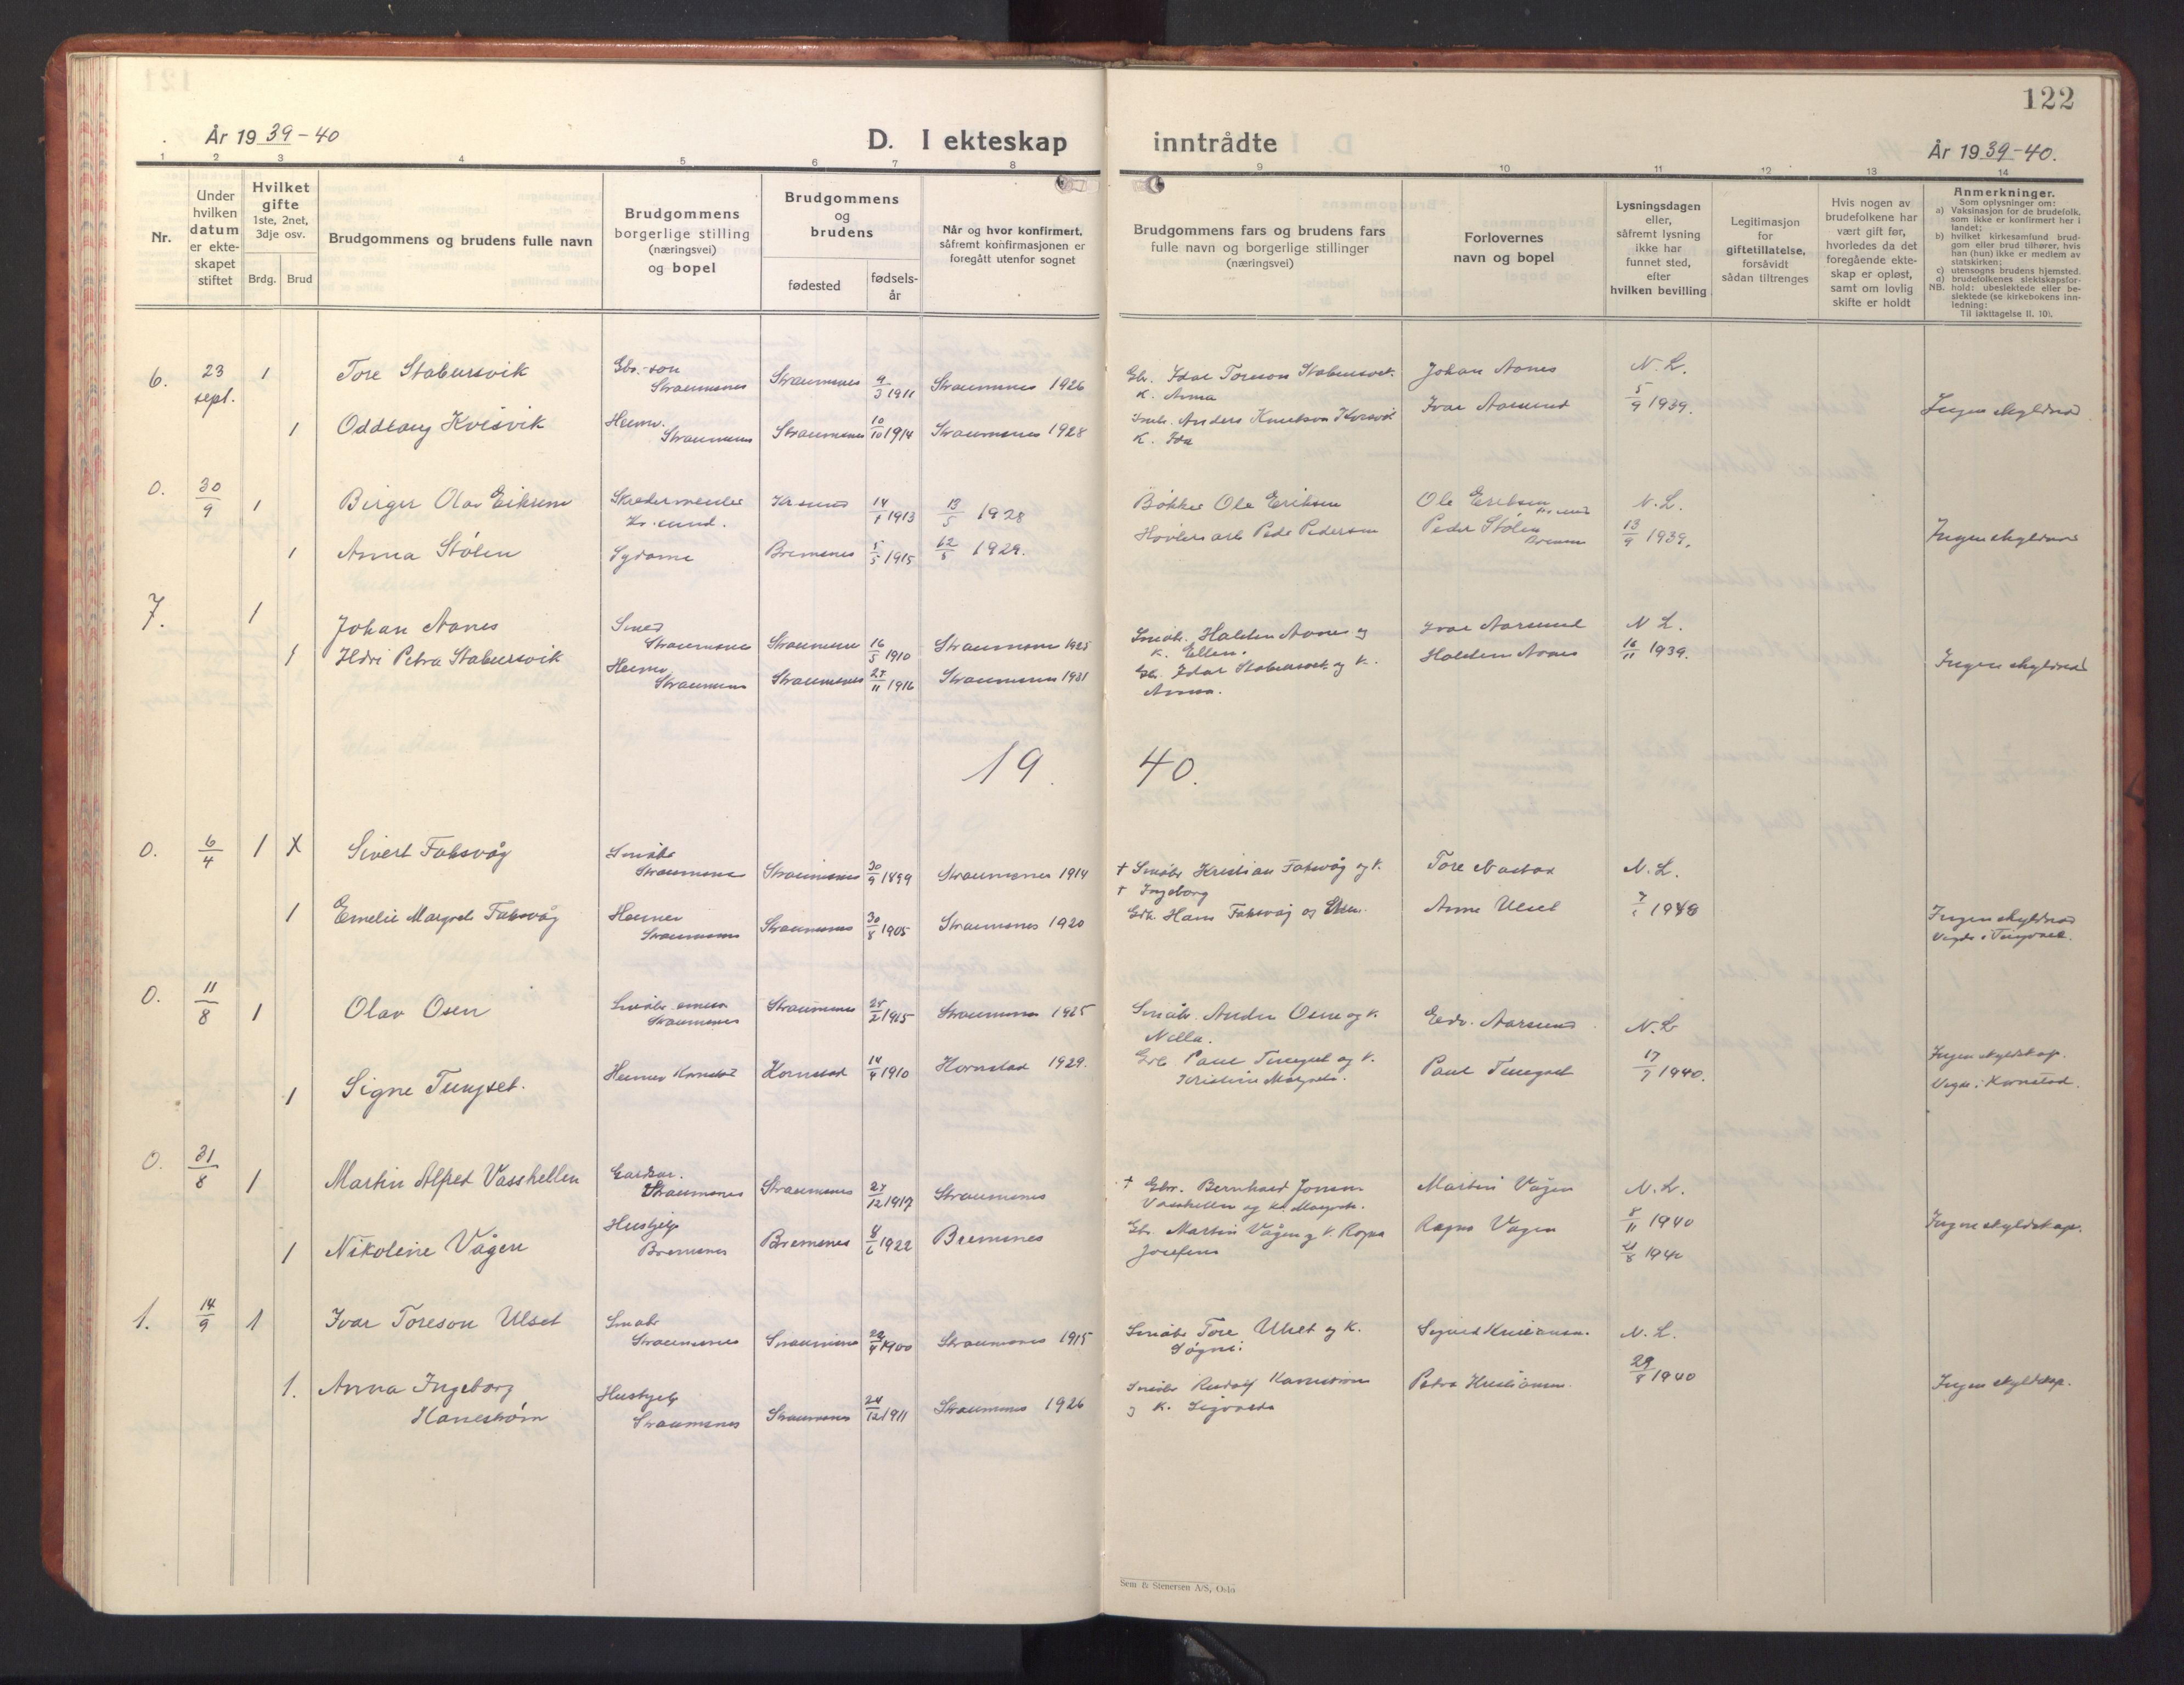 122
År 1939-40
D. I ekteskap inntrådte
År 1939-40.
1 2 3 4 5 6 7 8 9 10 11 12 13 14
Nr.
Under
hvilken
datum
er ekte-
skapet
stiftet
Hvilket
gifte
1ste, 2net,
3dje osv.
Brdg. Brud
Brudgommens og brudens fulle navn
Brudgommens
borgerlige stilling
(næringsvei)
og bopel
Brudgommens
og
brudens
fødested
fødsels-
år
Når og hvor konfirmert,
såfremt konfirmasjonen er
foregått utenfor sognet
Brudgommens fars og brudens fars
fulle navn og borgerlige stillinger
(næringsvei)
Forlovernes
navn og bopel
Lysningsdagen
eller,
såfremt lysning
ikke har
funnet sted,
efter
hvilken bevilling
Legitimasjon
for
giftetillatelse,
forsåvidt
sådan tiltrenges
Hvis nogen av
brudefolkene har
vært gift før,
hvorledes da det
foregående ekte-
skap er opløst,
samt om lovlig
skifte er holdt
Anmerkninger.
Som oplysninger om:
a) Vaksinasjon for de brudefolk,
som ikke er konfirmert her i
landet;
b) hvilket kirkesamfund brud-
gom eller brud tilhører, hvis
han (hun) ikke er medlem av
statskirken;
c) utensogns brudens hjemsted.
d) brudefolkenes slektskapsfor-
NB. hold: ubeslektede eller be-
slektede (se kirkebokens inn-
ledning:
Til iakttagelse II. 10).
6. 23 sept. 1 Tore Stabursvik Gbr.-søn Straumsnes Straumsnes 9/3 1911 Straumsnes 1926 Gbr. Idar Toreson Stabursvik Johan Aanes N. L.
K. Anna Ivar Aarsund 5/9 1939.
1 Oddborg Kvisvik Heimv. Straumsnes Straumsnes 10/10 1914 Straumsnes 1928 Anders Knutson Kvisvik Ingen skyldskap
K. Ida
0. 30/9 1 Birger Olav Eriksen Kr.sund. Kr.sund 1913 13/5 1928 Bøkker Ole Eriksen Ole Eriksen Kr.sund N. L.
1 Anna Stølen Sydame Bremsnes 5/5 1915 1929. Peder Pedersen Peder Stølen 13/9 1939. Ingen skyldskap
7. 1 Johan Aanes Smed Straumsnes Straumsnes 16/5 1910 Straumsnes 1925 Småbr. Halden Aanes og Ivar Aarsund N. L.
K. Ellen.
1 Petra Stabursvik Heimv. Straumsnes Straumsnes 27/11 1916 Straumsnes 1931 Gbr. Idar Stabursvik og K. Halden Aanes 16/11 1939. Ingen skyldskap
Anna.
19 40.
0. 6/4 1 X Sivert Faksvåg Småbr. Straumsnes Straumsnes 30/9 1899 Straumsnes 1914 † Småbr. Kristian Faksvåg og K. Tore N. L.
† Ingeborg
1 Emelie Margrete Faksvåg Heimv. Straumsnes Straumsnes 30/8 1905 Straumsnes 1920 Gbr. Hans Faksvåg og Anne Ulset 1940 Ingen skyldskap
Vigde i Tingvoll.
0. 11/8 1 Olav Osen Småbr. Straumsnes Straumsnes Straumsnes 1925 Småbr. Anders Osen og K. Edv. Aarsund N. L.
Nella.
1 Signe Tungset. Heimv. Kornstad Kornstad 1910 Kornstad 1929. Gbr. Paul Tungset og K. Paul Tungset 17/7 1940. Ingen skyldskap.
Kristine Margrete. Vigde i Kornstad.
0. 31/8 1 Martin Alfred Vasshellen Straumsnes Straumsnes 27/12 1917 Straumsnes † Gbr. Bernhard Jonsen Martin Vågen N. L.
Vasshellen og K. Margrete.
1 Nikoline Vågen Hushjelp Bremsnes Bremsnes 1922 Bremsnes Gbr. Martin Vågen og K. Ragna Ragna Vågen 8/11 1940 Ingen skyldskap.
Josefine 1940
1. 14/9 1 Ivar Toreson Ulset Småbr. Straumsnes Straumsnes 1900 Straumsnes 1915 Småbr. Tore Ulset og K. Sigurd Kristiansen. N. L.
1. Anna Ingeborg Småbr. Rudolf Kanestrøm Petra Kristiansen 29/8 1940 Ingen skyldskap.
Kanestrøm Hushjelp Straumsnes Straumsnes 24/12 1911 Straumsnes 1926 og K.
Sem & Stenersen A/S, Oslo